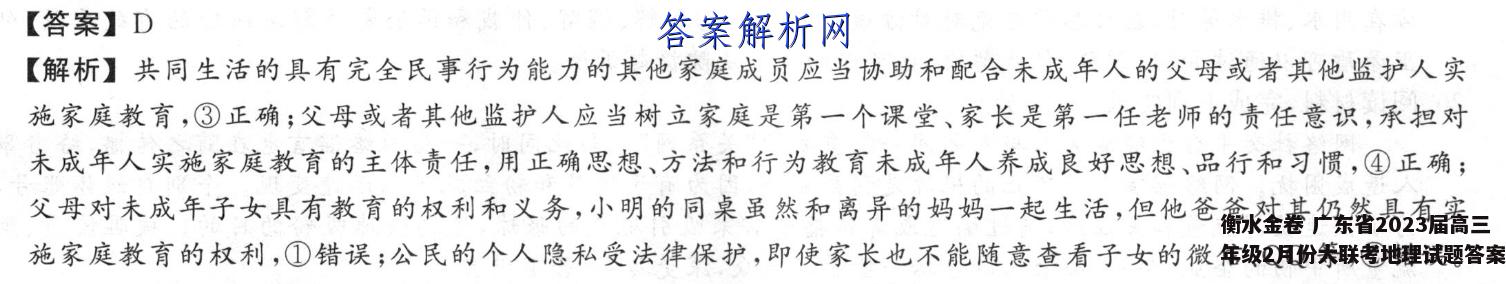 【答案】D
答案解析网
【解析】共同生活的具有完全民事行为能力的其他家庭成员应当协助和配合未成年人的父母或者其他监护人实
施家庭教育,③正确;父母或者其他监护人应当树立家庭是第一个课堂、家长是第一任老师的责任意识,承担对
未成年人实施家庭教育的主体责任,用正确思想、方法和行为教育未成年人养成良好思想、品行和习惯,④正确;
父母对未成年子女具有教育的权利和义务,小明的同桌虽然和离异的妈妈一起生活,但他爸爸对其仍然具有实
施家庭教育的权利,①错误;公民的个人隐私受法律保护,即使家长也不能随意查看子女的微
衡水金卷 广东省2023届高三
年级2月份大联考地理试题答案